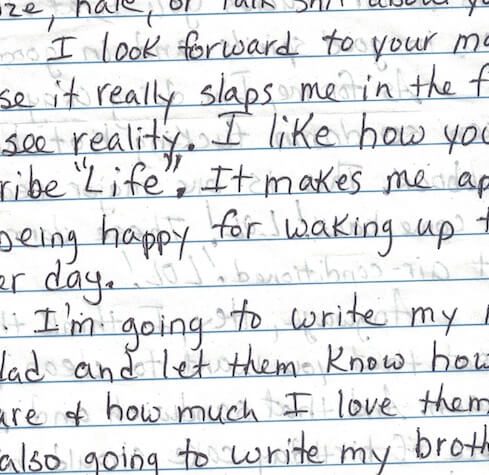 ze, hate, or talk shit about y
I look forward to your m
se it really slaps me in the f
see reality. I like how you
ribe "Life". It makes me ap
being happy for waking up t
er day.
. I'm going to write my
dad and let them know how
are & how much I love them
also going to write my broth